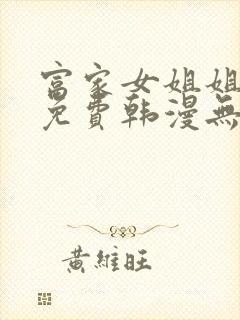 富家女姐姐
免費韩漫無
黃維旺